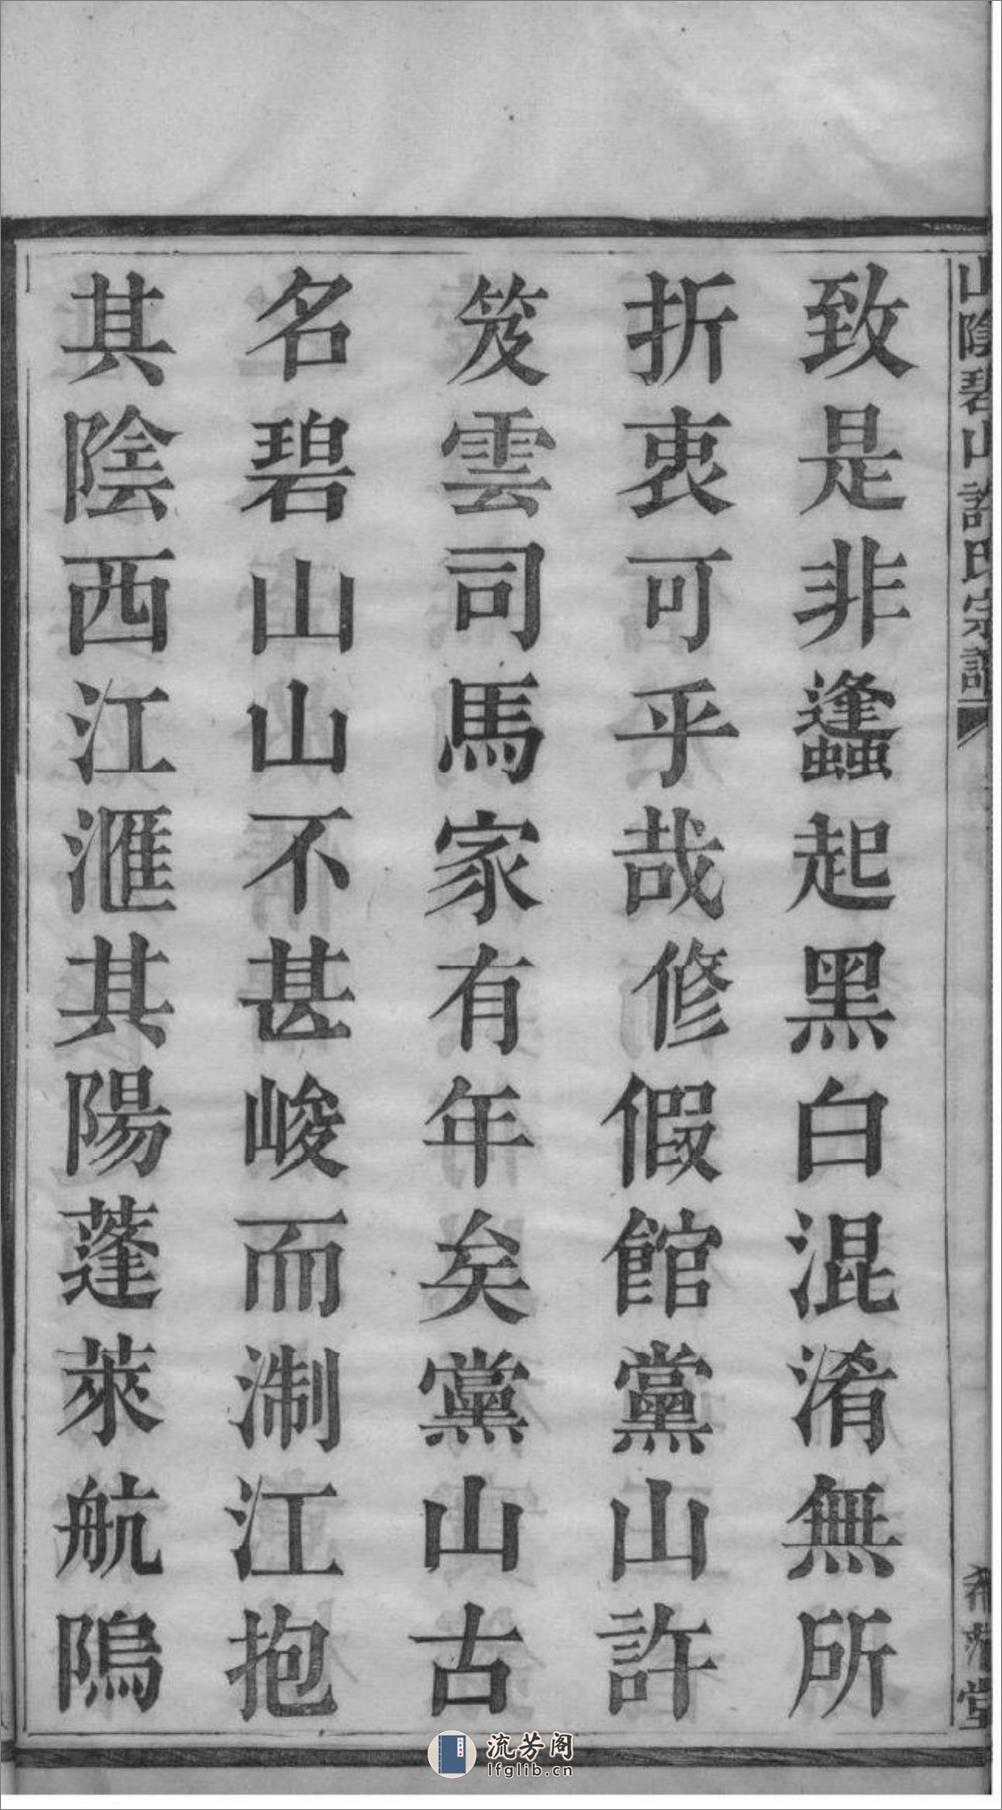 山陰碧山許氏宗譜
致是非蠭起黑白混淆無所
折衷可乎哉修假館黨山許
笈雲司馬家有年矣黨山古
名碧山山不甚峻而淛江抱
其陰西江滙其陽蓬萊航隖
堂
流芳阁
lfglib.cn